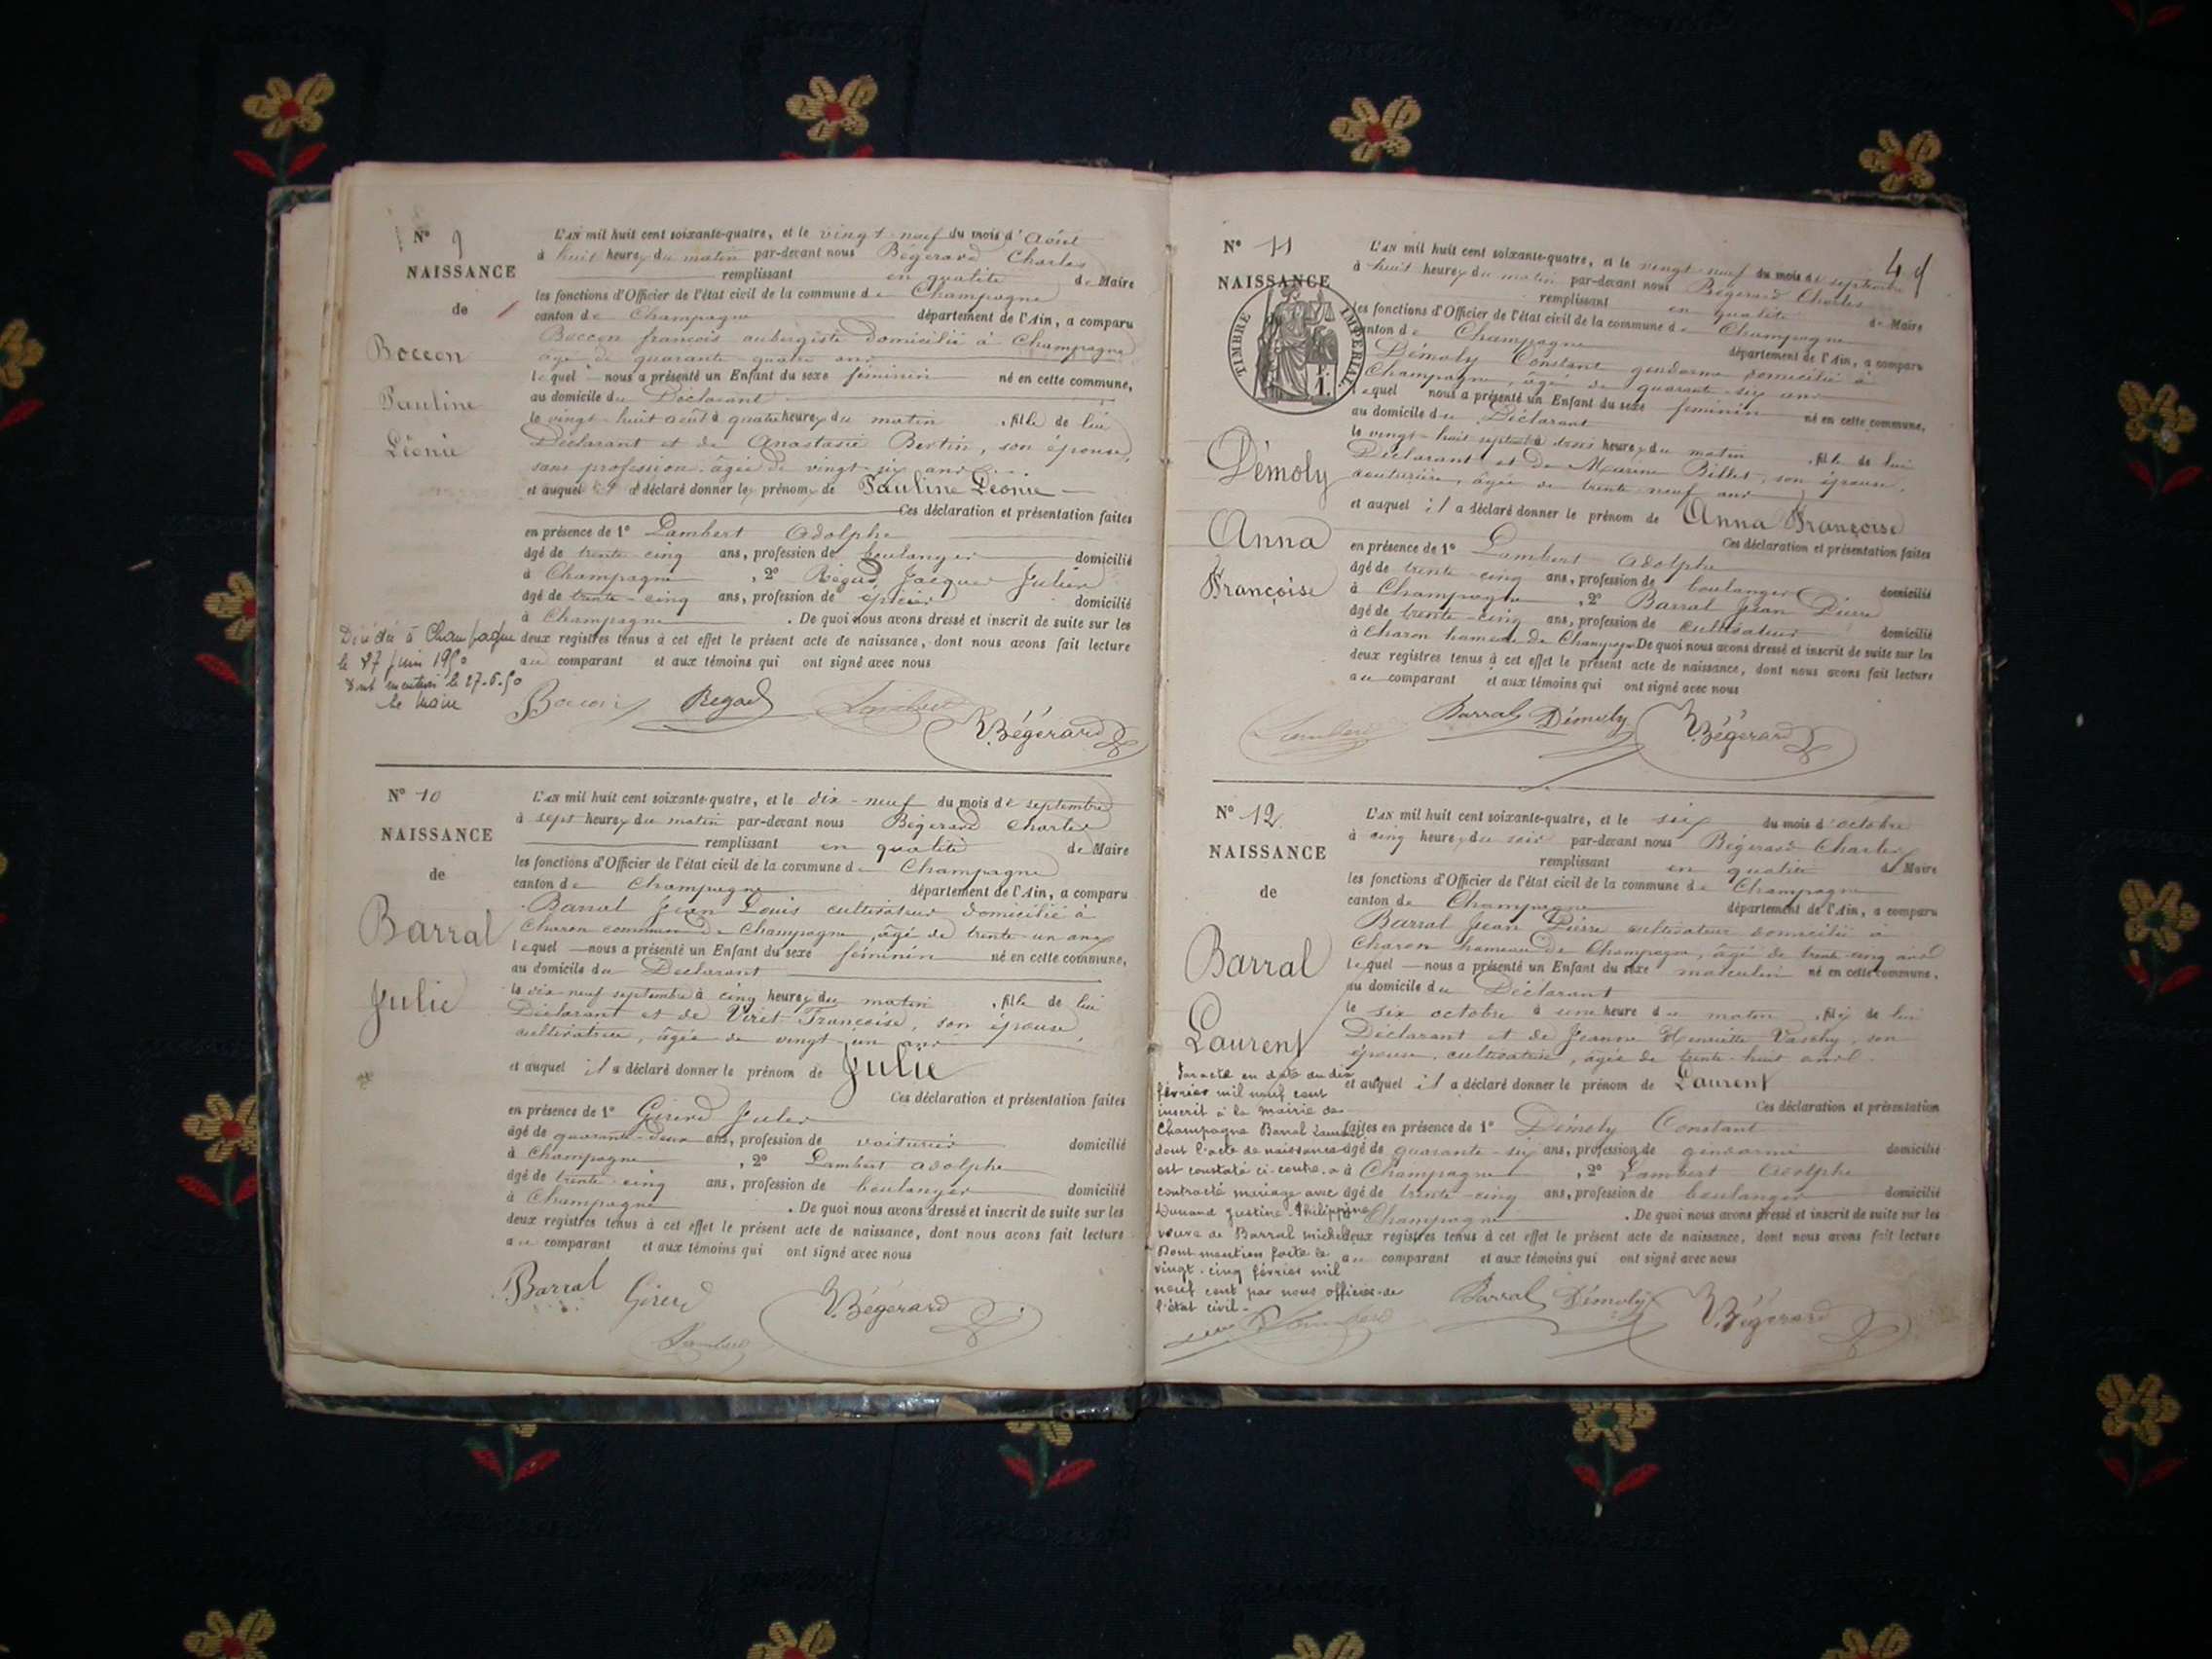 N° 9
NAISSANCE
de
Boccon
Pauline
Léonie
L'AN mil huit cent soixante-quatre, et le vingt neuf du mois d'Août
à huit heures du matin par-devant nous Bégerard Charles
remplissant en qualité de Maire
les fonctions d'Officier de l'état civil de la commune de Champagne
canton de Champagne département de l'Ain, a comparu
Boccon françois aubergiste domicilié à Champagne
âgé de quarante quatre ans
lequel nous a présenté un Enfant du sexe féminin né en cette commune,
au domicile du Déclarant
le vingt-huit août à quatre heures du matin , fille de lui
Déclarant et de Anastasie Bertin, son épouse,
sans profession, âgée de vingt-six ans
et auquel il a déclaré donner les prénoms de Pauline Léonie
Ces déclaration et présentation faites
en présence de 1° Lambert Adolphe
âgé de trente-cinq ans, profession de boulanger domicilié
à Champagne , 2° Régad Jacques Julien
âgé de trente-cinq ans, profession de épicier domicilié
à Champagne . De quoi nous avons dressé et inscrit de suite sur les
deux registres tenus à cet effet le présent acte de naissance, dont nous avons fait lecture
au comparant et aux témoins qui ont signé avec nous
Décédée à Champagne
le 27 Juin 1950
dont mention le 27.6.50
le Maire
Boccon Regad Lambert
Bégerard
N° 10
NAISSANCE
de
Barral
Julie
L'AN mil huit cent soixante-quatre, et le dix-neuf du mois de septembre
à sept heures du matin par-devant nous Bégerard Charles
remplissant en qualité de Maire
les fonctions d'Officier de l'état civil de la commune de Champagne
canton de Champagne département de l'Ain, a comparu
Barral Jean Louis cultivateur domicilié à
Charon commune de Champagne, âgé de trente-un ans
lequel nous a présenté un Enfant du sexe féminin né en cette commune,
au domicile du Déclarant
le dix-neuf septembre à cinq heures du matin , fille de lui
Déclarant et de Viret Françoise, son épouse,
cultivatrice, âgée de vingt-un ans
et auquel il a déclaré donner le prénom de Julie
Ces déclaration et présentation faites
en présence de 1° Girerd Jules
âgé de quarante-deux ans, profession de voiturier domicilié
à Champagne , 2° Lambert Adolphe
âgé de trente-cinq ans, profession de boulanger domicilié
à Champagne . De quoi nous avons dressé et inscrit de suite sur les
deux registres tenus à cet effet le présent acte de naissance, dont nous avons fait lecture
au comparant et aux témoins qui ont signé avec nous
Barral Girerd Bégerard
Lambert
49
N° 11
NAISSANCE
TIMBRE IMPÉRIAL
F.
1.
Démoly
Anna
Françoise
L'AN mil huit cent soixante-quatre, et le vingt-neuf du mois de septembre
à huit heures du matin par-devant nous Bégerard Charles
remplissant en qualité de Maire
les fonctions d'Officier de l'état civil de la commune de Champagne
canton de Champagne département de l'Ain, a comparu
Démoly Constant gendarme domicilié à
Champagne, âgé de quarante-six ans
lequel nous a présenté un Enfant du sexe féminin né en cette commune,
au domicile du Déclarant
le vingt-huit à trois heures du matin , fille de lui
Déclarant et de Billet, son épouse,
couturière, âgée de trente-neuf ans
et auquel il a déclaré donner le prénom de Anna Françoise
Ces déclaration et présentation faites
en présence de 1° Lambert Adolphe
âgé de trente-cinq ans, profession de boulanger domicilié
à Champagne , 2° Barral Jean Pierre
âgé de trente-cinq ans, profession de cultivateur domicilié
à Charon hameau de Champagne De quoi nous avons dressé et inscrit de suite sur les
deux registres tenus à cet effet le présent acte de naissance, dont nous avons fait lecture
au comparant et aux témoins qui ont signé avec nous
Lambert Barral Démoly Bégerard
N° 12
NAISSANCE
de
Barral
Laurent
L'AN mil huit cent soixante-quatre, et le six du mois d'octobre
à cinq heures du soir par-devant nous Bégerard Charles
remplissant en qualité de Maire
les fonctions d'Officier de l'état civil de la commune de Champagne
canton de Champagne département de l'Ain, a comparu
Barral Jean Pierre cultivateur domicilié à
Charon hameau de Champagne, âgé de trente-cinq ans
lequel nous a présenté un Enfant du sexe masculin né en cette commune,
au domicile du Déclarant
le six octobre à une heure du matin , fils de lui
Déclarant et de Jeanne Henriette Vachy, son
épouse, cultivatrice, âgée de trente-huit ans
et auquel il a déclaré donner le prénom de Laurent
Ces déclaration et présentation
faites en présence de 1° Démoly Constant
âgé de quarante-six ans, profession de gendarme domicilié
à Champagne , 2° Lambert Adolphe
âgé de trente-cinq ans, profession de boulanger domicilié
à Champagne . De quoi nous avons dressé et inscrit de suite sur les
deux registres tenus à cet effet le présent acte de naissance, dont nous avons fait lecture
au comparant et aux témoins qui ont signé avec nous
Par acte en date du dix
février mil neuf cent
inscrit à la mairie de
Champagne Barral Laurent
dont l'acte de naissance
est constaté ci-contre, a
contracté mariage avec
Durand Justine-Philippine
veuve de Barral Michel
Dont mention faite le
vingt-cinq février mil
neuf cent par nous officier de
l'état civil.
Lambert Barral Démoly Bégerard